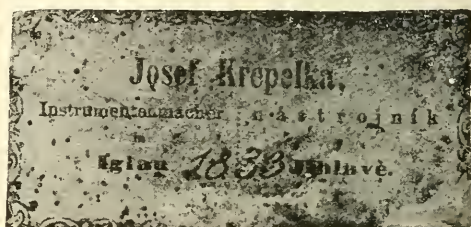 Josef Krepelka,
Instrumentenmacher nástrojník
in v
Iglau 1833 Jihlavě.